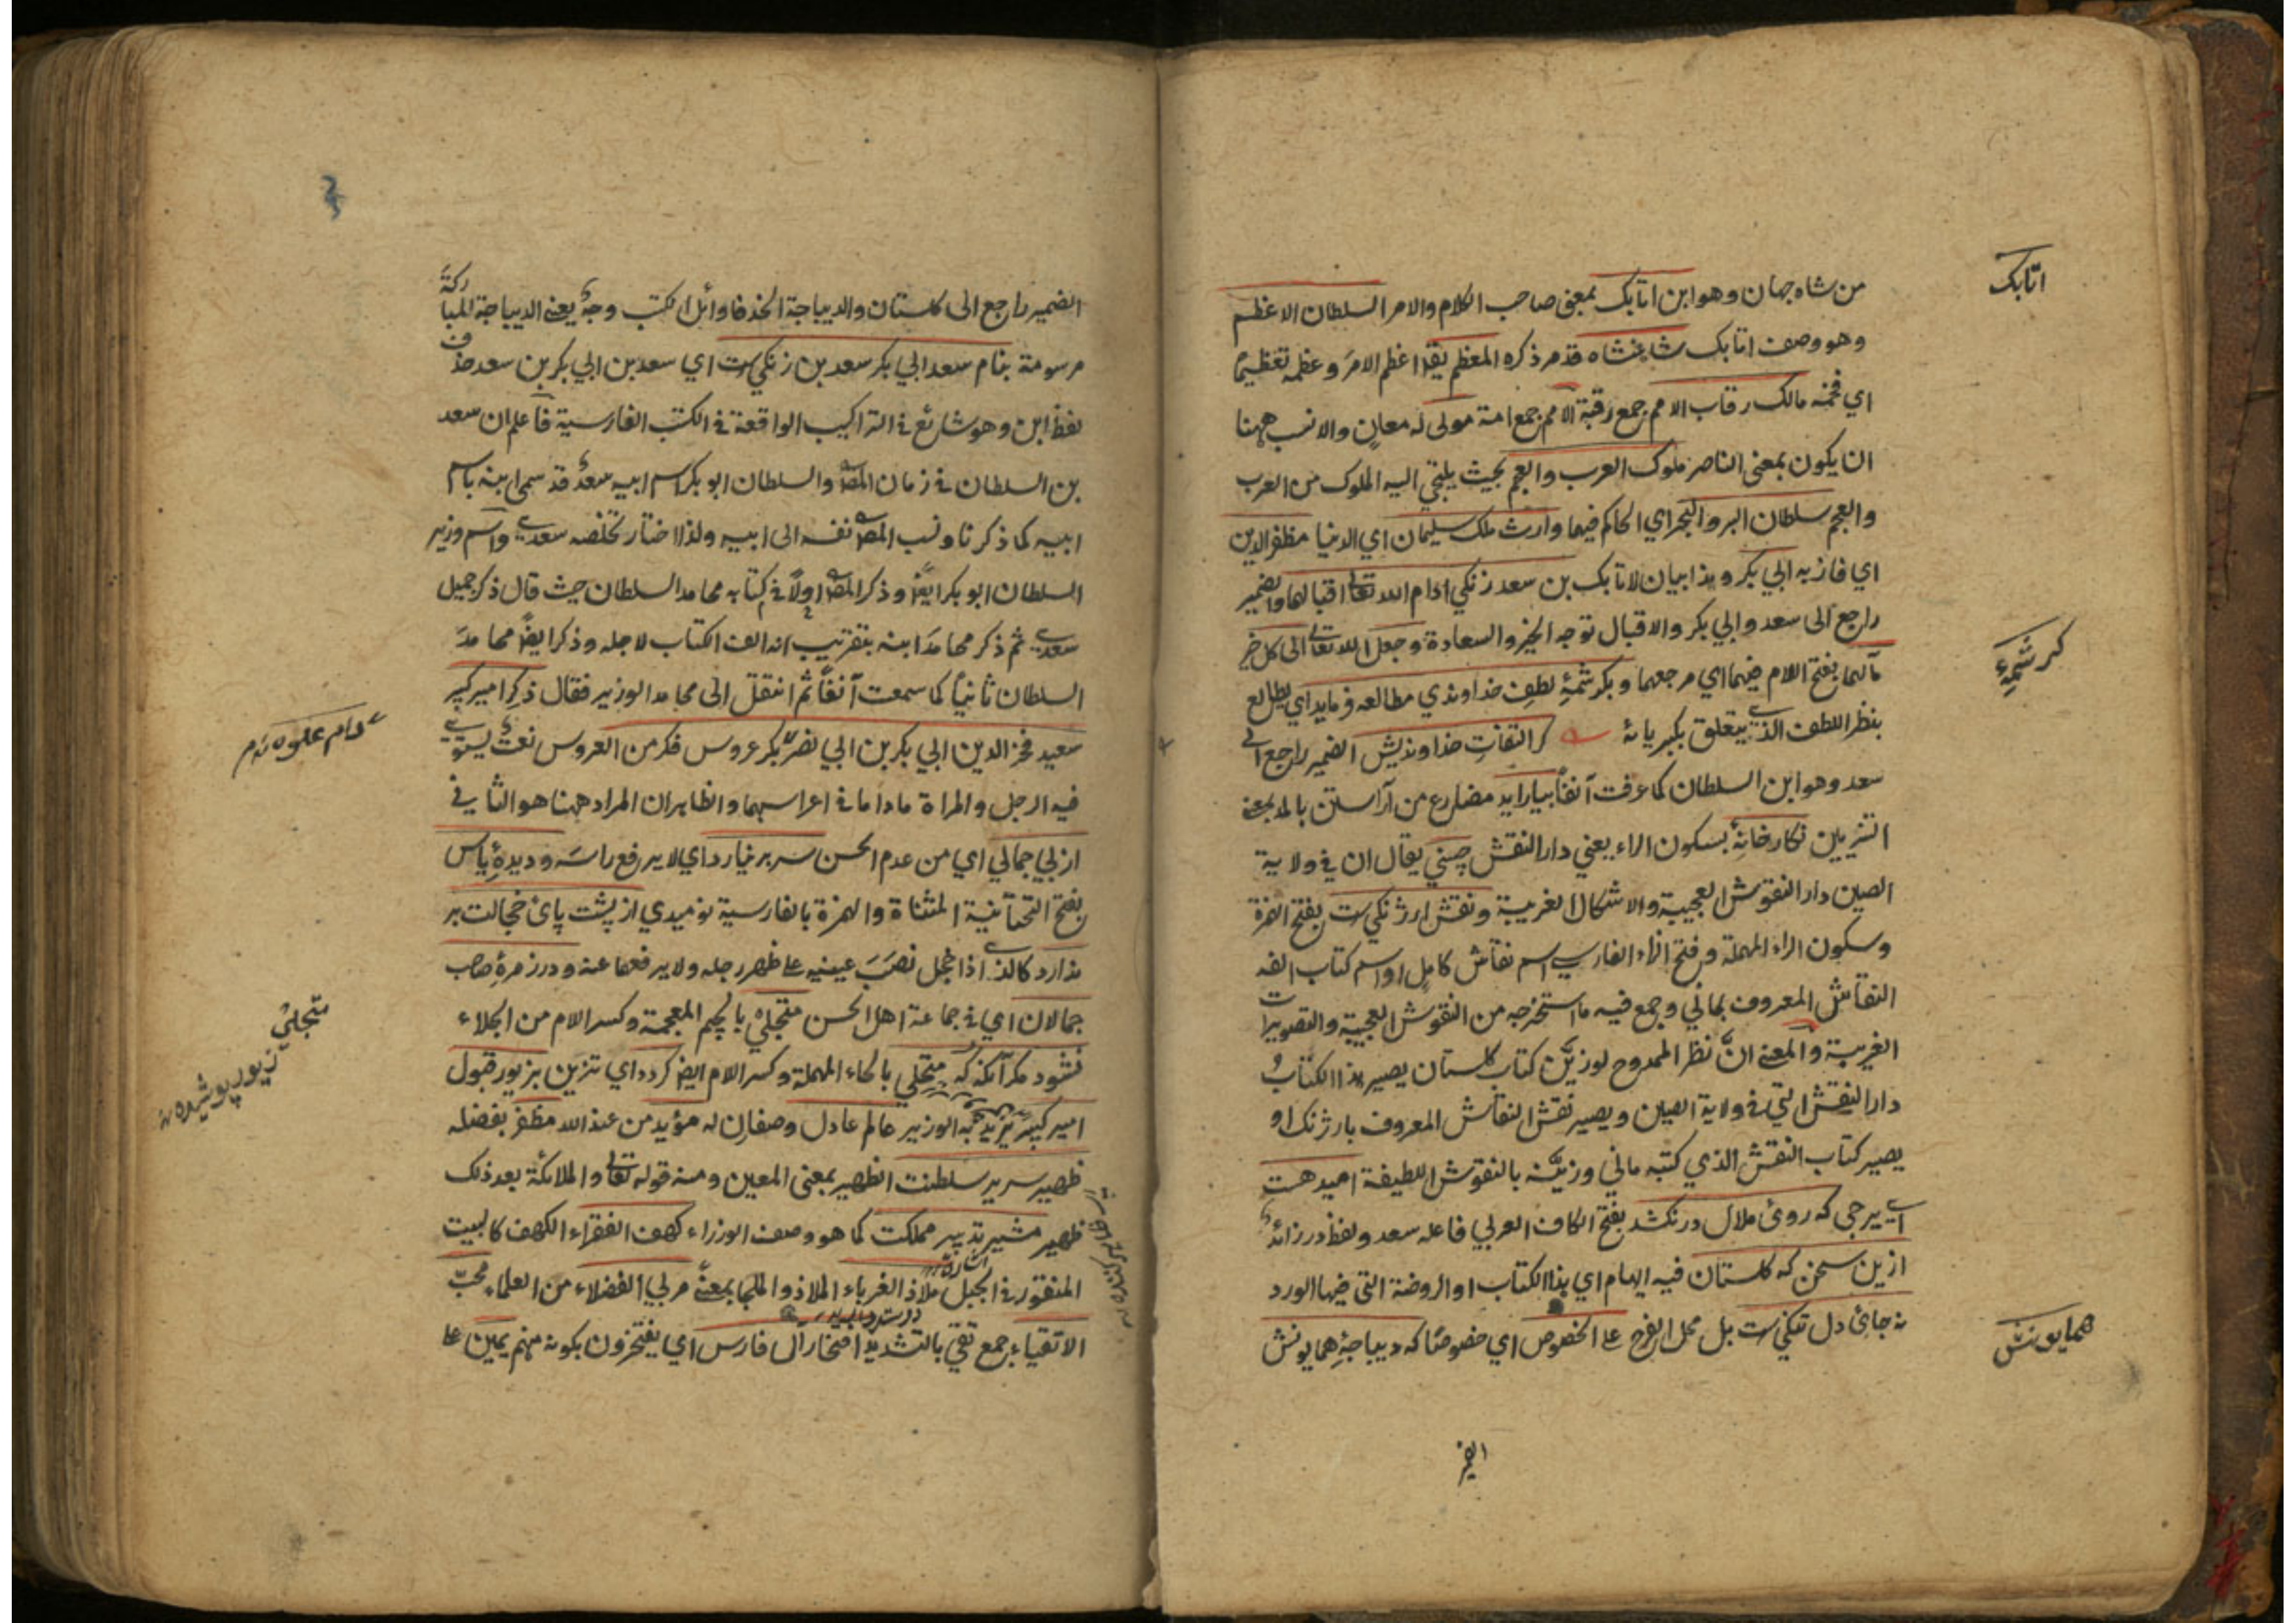 من شاه جهان وهو ابن اتابك بمعنى صاحب الكلام والامر السلطان الاعظم
اتابك
وهو وصف اتابك شاهنشاه قد مر ذكره المعظم يقا اعظم الامر وعظمه تعظيما
اي فخمه مالك رقاب الامم جمع رقبة الامم جمع امة مولى له معان والانسب ههنا
ان يكون بمعنى الناصر ملوك العرب والعجم بحيث يلتجي اليه الملوك من العرب
والعجم سلطان البر والبحر اي الحاكم فيهما وارث ملك سليمان اي الدنيا مظفر الدين
اي فاز به ابي بكر وهذا بيان لاتابك بن سعد زنكي ادام الله تعالى اقبالهما والضمير
راجع الى سعد وابي بكر والاقبال توجه الخير والسعادة وجعل الله تعالى الى كل خير
كرشمهٔ
مآلهما بفتح اللام فيهما اي مرجعهما وبكرشمهٔ لطف خداوندي مطالعه فرمايد اي يطالع
بنظر اللطف الذي يتعلق بكبريائه كر التفات خداونديش الضمير راجع الى
سعد وهو ابن السلطان كما عرفت آنفا بيارايد مضارع من آراستن بالمد بمعنى
التزيين نكارخانهٔ بسكون الراء يعني دار النقش چيني يقال ان في ولاية
الصين دار النقوش العجيبة والاشكال الغريبة ونقش ارژنكيست بفتح الهمزة
وسكون الراء المهملة وفتح الزاء الفارسي اسم نقاش كامل او اسم كتاب الفه
النقاش المعروف بماني وجمع فيه ما استخرجه من النقوش العجيبة والتصويرات
الغريبة والمعنى ان نظر الممدوح لو زين كتاب كلستان يصير هذا الكتاب
دار النقش التي في ولاية الصين ويصير نقش النقاش المعروف بارژنك او
يصير كتاب النقش الذي كتبه ماني وزينه بالنقوش اللطيفة اميد هست
اي يرجى كه روئ ملال درنكشد بفتح الكاف العربي فاعله سعد ولفظ در زائد
ازين سخن كه كلستان فيه ايهام اي هذا الكتاب او الروضة التي فيها الورد
نه جائ دل تنكيست بل محل الفرح على الخصوص اي خصوصا كه ديباجهٔ همايونش
همايونش
الضمير راجع الى كلستان والديباجة الخد فاوائل الكتب وجه يعني الديباجة المباركة
مرسومة بنام سعد ابي بكر سعد بن زنكيست اي سعد بن ابي بكر بن سعد حذف
لفظ ابن وهو شائع في التراكيب الواقعة في الكتب الفارسية فاعلم ان سعد
بن السلطان في زمان المصـ والسلطان ابو بكر اسم ابيه سعد قد سمى ابنه باسم
ابيه كما ذكرنا ونسب المصـ نفسه الى ابيه ولذا اختار تخلصه سعدي واسم وزير
السلطان ابو بكر ايضا وذكر المصـ اولا في كتابه محامد السلطان حيث قال ذكر جميل
سعدي ثم ذكر محامد ابنه بتقريب انه الف الكتاب لاجله وذكر ايضا محامد
السلطان ثانيا كما سمعت آنفا ثم انتقل الى محامد الوزير فقال ذكر امير كبير
سعيد فخر الدين ابي بكر بن ابي نصر بكر عروس فكر من العروس نعت يستوي
فيه الرجل والمراة ماداما في اعراسهما والظاهر ان المراد ههنا هو الثاني
از بي جمالي اي من عدم الحسن سر برنيارد اي لا يرفع راسه وديدهٔ ياس
بفتح التحتانية المثناة والهمزة بالفارسية نوميدي از پشت پائ خجالت بر
ندارد كالذي اذا خجل نصب عينيه على ظهر رجله ولا يرفعهما عنه ودر زمرهٔ صاحب
جمالان اي في جماعة اهل الحسن متجلي بالجيم المعجمة وكسر اللام من الجلاء
متجلي
زيور پوشيده
نشود مكر آنكه كه متحلي بالحاء المهملة وكسر اللام ايضا كردد اي تزين بزيور قبول
امير كبير الوزير عالم عادل وصفان له مؤيد من عند الله مظفر بفضله
ظهير سرير سلطنت الظهير بمعنى المعين ومنه قوله تعالى والملائكة بعد ذلك
ظهير مشير تدبير مملكت كما هو وصف الوزراء كهف الفقراء الكهف كالبيت
المنقور في الجبل ملاذ الغرباء الملاذ والملجا بمعنى مربي الفضلاء من العلماء محب
الاتقياء جمع تقي بالتشديد افتخار آل فارس اي يفتخرون بكونه منهم يمين على